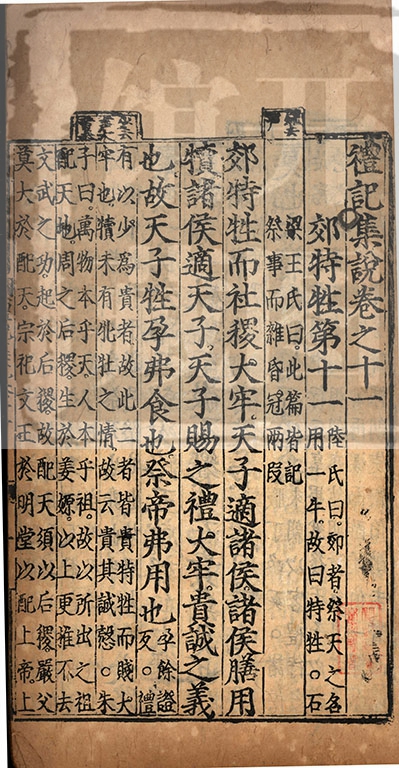 禮記集說卷之十一
郊特牲第十一 陸氏曰。郊者。祭天之名
用一牛。故曰特牲。石
梁王氏曰。此篇皆記
祭事而雜昏冠兩段
郊特牲而社稷大牢。天子適諸侯諸侯膳用
犢諸侯適天子。天子賜之禮大牢。貴誠之義
也故天子牲孕弗食也。祭帝弗用也 孕餘證
反。○禮
有以少爲貴者。故此二者皆貴特牲而賤大
牢也。犢未有牝牡之情。故云貴其誠慤。○朱
子曰。萬物本乎天。人本乎祖。故以所出之祖
配天地。周之后稷。生於姜嫄。以上更推不去
文武之功。起於后稷。故配天須以后稷。嚴父
莫大於配天。宗祀文王於明堂以配上帝上